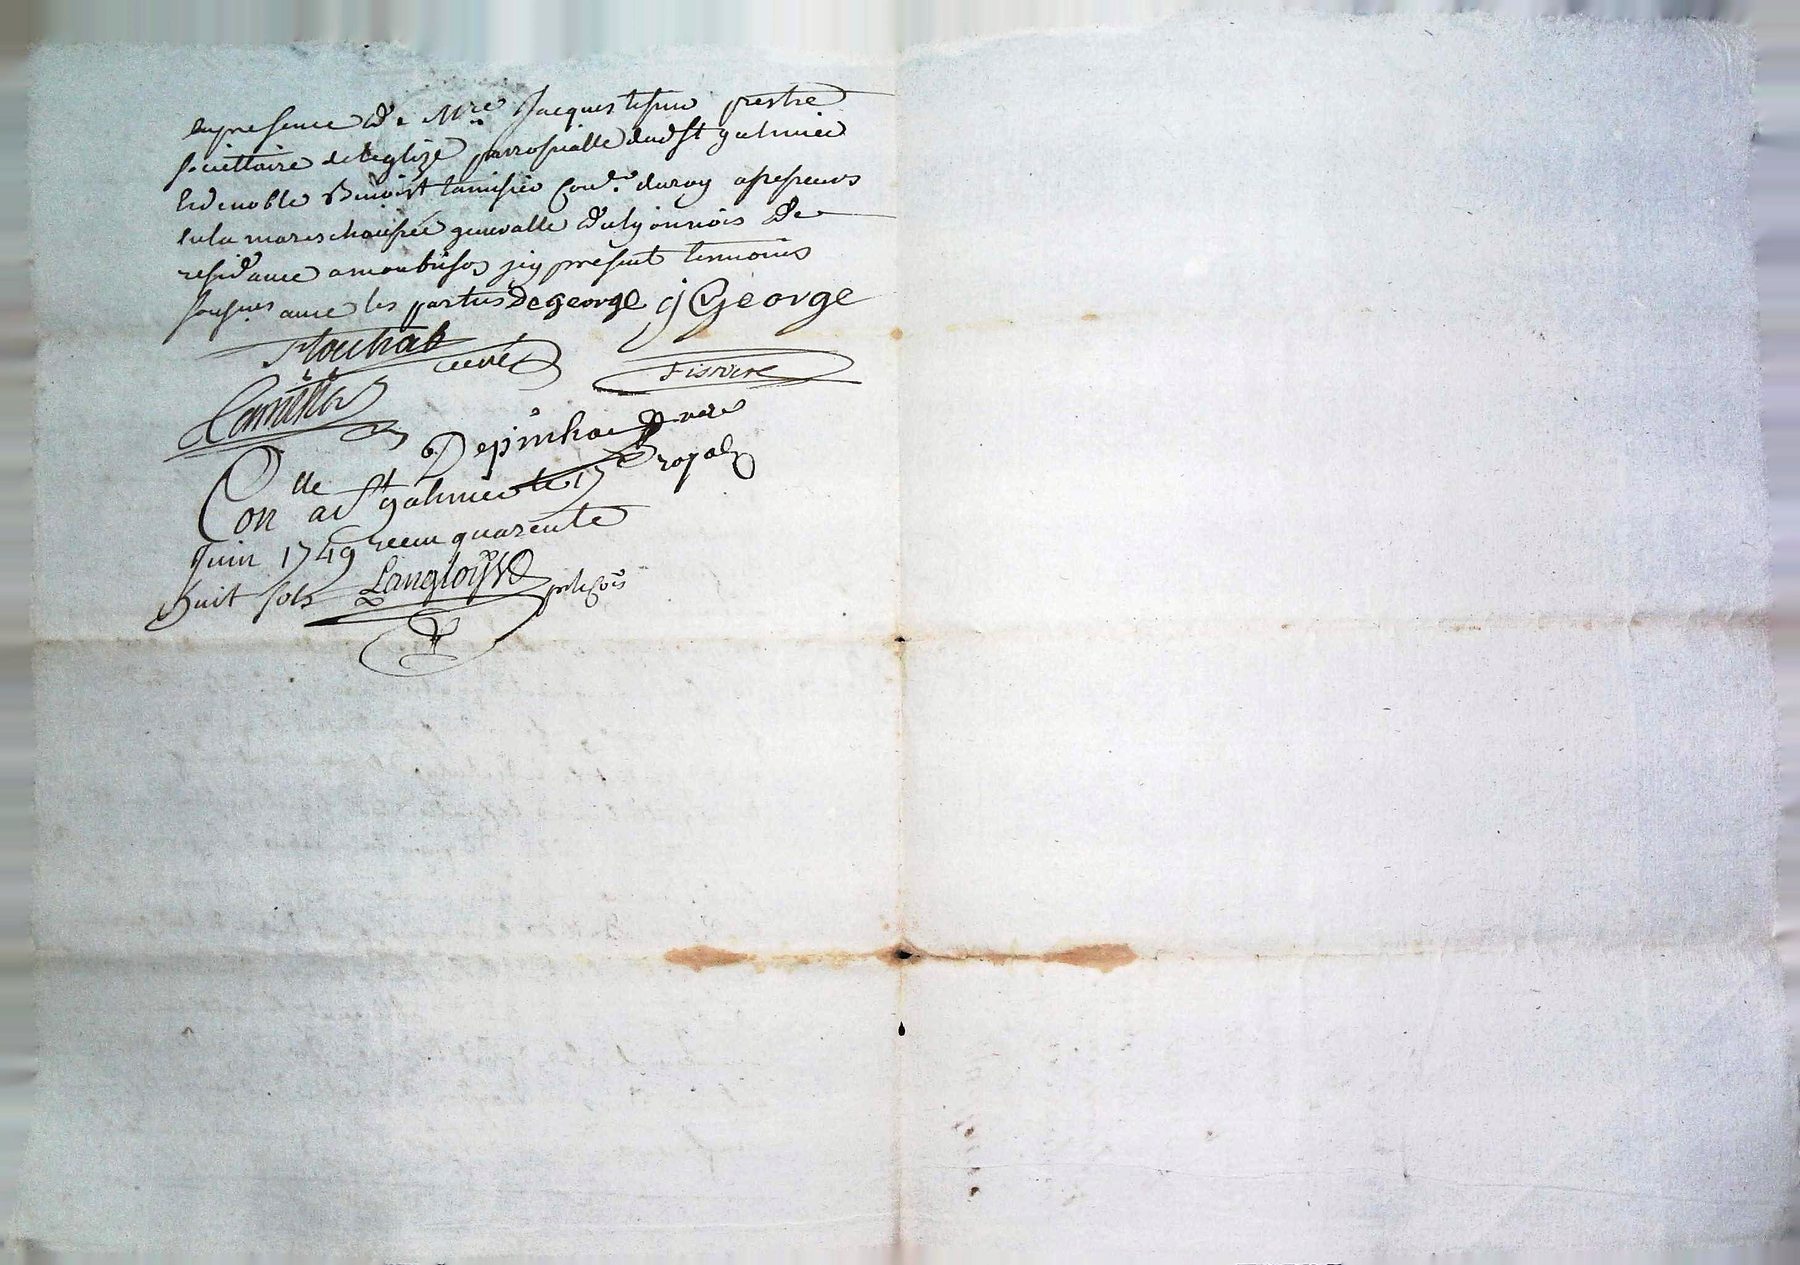 en presence de Mre Jacques prestre
societtaire de leglize parrossialle dud st galmier
et de noble Benoist tamisier Coner du roy assesseurs
en la mareschaussée generalle du lyonnois de
residance a montbrison icy present temoins
sousnes avec les parties De george g George
flachat curé Fissore
tamisier
Depinhac nore
royal
Conlle a st galmier le 17
Juin 1749 receu quarente
huit sols Langloys